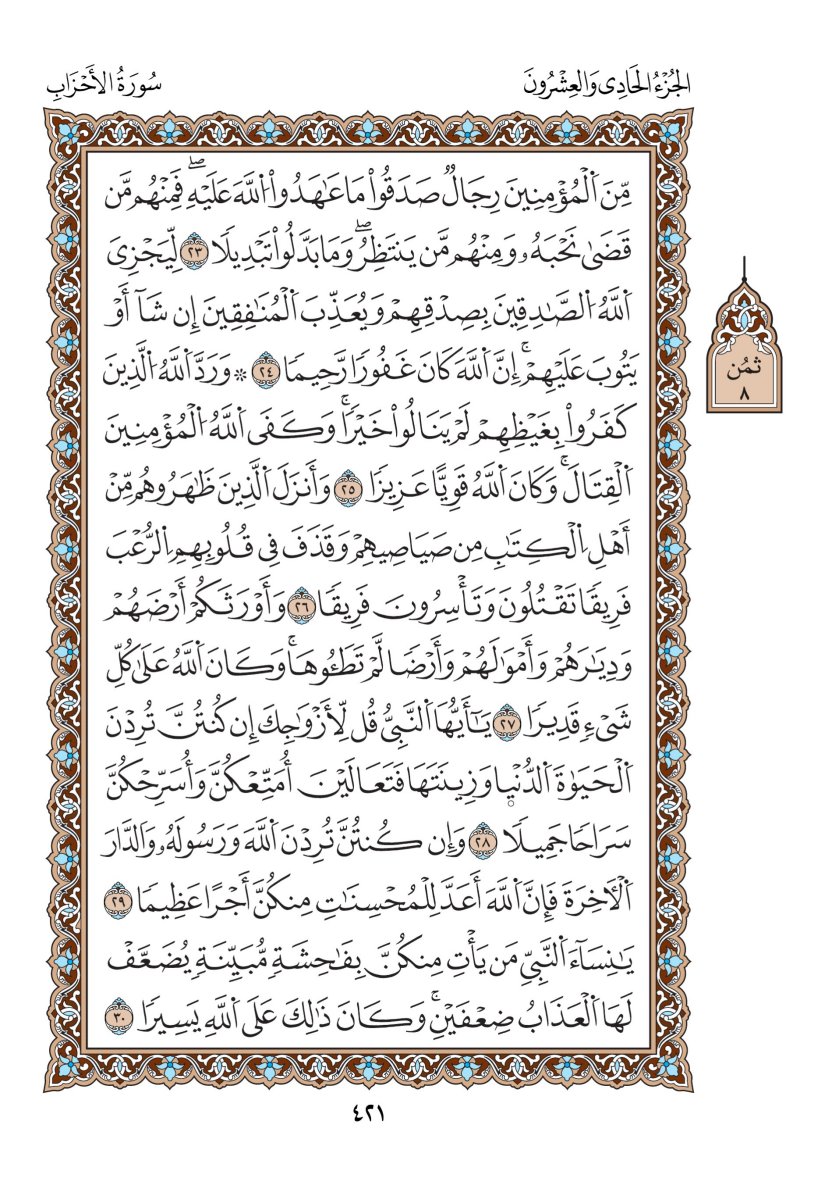 الجُزْءُ الحَادِى وَالعِشْرُونَ
سُورَةُ الأَحْزَابِ
مِّنَ اَ۬لْمُؤْمِنِينَ رِجَالٞ صَدَقُواْ مَا عَٰهَدُواْ اُ۬للَّهَ عَلَيْهِۖ فَمِنْهُم مَّن
قَضَىٰ نَحْبَهُۥ وَمِنْهُم مَّن يَنتَظِرُۖ وَمَا بَدَّلُواْ تَبْدِيلٗا ٢٣ لِّيَجْزِىَ
اَ۬للَّهُ اُ۬لصَّٰدِقِينَ بِصِدْقِهِمْ وَيُعَذِّبَ اَ۬لْمُنَٰفِقِينَ إِن شَآ أَوْ
يَتُوبَ عَلَيْهِمْۚ إِنَّ اَ۬للَّهَ كَانَ غَفُورٗا رَّحِيمٗا ٢٤ ۞ وَرَدَّ اَ۬للَّهُ اُ۬لَّذِينَ
كَفَرُواْ بِغَيْظِهِمْ لَمْ يَنَالُواْ خَيْرٗاۚ وَكَفَى اَ۬للَّهُ اُ۬لْمُؤْمِنِينَ
اَ۬لْقِتَالَۚ وَكَانَ اَ۬للَّهُ قَوِيًّا عَزِيزٗا ٢٥ وَأَنزَلَ اَ۬لَّذِينَ ظَٰهَرُوهُم مِّنْ
أَهْلِ اِ۬لْكِتَٰبِ مِن صَيَاصِيهِمْ وَقَذَفَ فِى قُلُوبِهِمِ اِ۬لرُّعْبَ
فَرِيقٗا تَقْتُلُونَ وَتَأْسِرُونَ فَرِيقٗا ٢٦ وَأَوْرَثَكُمْ أَرْضَهُمْ
وَدِيَٰرَهُمْ وَأَمْوَٰلَهُمْ وَأَرْضٗا لَّمْ تَطَـُٔوهَاۚ وَكَانَ اَ۬للَّهُ عَلَىٰ كُلِّ
شَىْءٖ قَدِيرٗا ٢٧ يَٰٓأَيُّهَا اَ۬لنَّبِىُّ قُل لِّأَزْوَٰجِكَ إِن كُنتُنَّ تُرِدْنَ
اَ۬لْحَيَوٰةَ اَ۬لدُّنْيَا وَزِينَتَهَا فَتَعَالَيْنَ أُمَتِّعْكُنَّ وَأُسَرِّحْكُنَّ
سَرَاحٗا جَمِيلٗا ٢٨ وَإِن كُنتُنَّ تُرِدْنَ اَ۬للَّهَ وَرَسُولَهُۥ وَالدَّارَ
اَ۬لْأٓخِرَةَ فَإِنَّ اَ۬للَّهَ أَعَدَّ لِلْمُحْسِنَٰتِ مِنكُنَّ أَجْرًا عَظِيمٗا ٢٩
يَٰنِسَآءَ اَ۬لنَّبِىِّ مَن يَأْتِ مِنكُنَّ بِفَٰحِشَةٖ مُّبَيِّنَةٖ يُضَعَّفْ
لَهَا اَ۬لْعَذَابُ ضِعْفَيْنِۚ وَكَانَ ذَٰلِكَ عَلَى اَ۬للَّهِ يَسِيرٗا ٣٠
ثُمُن
٨
٤٢١